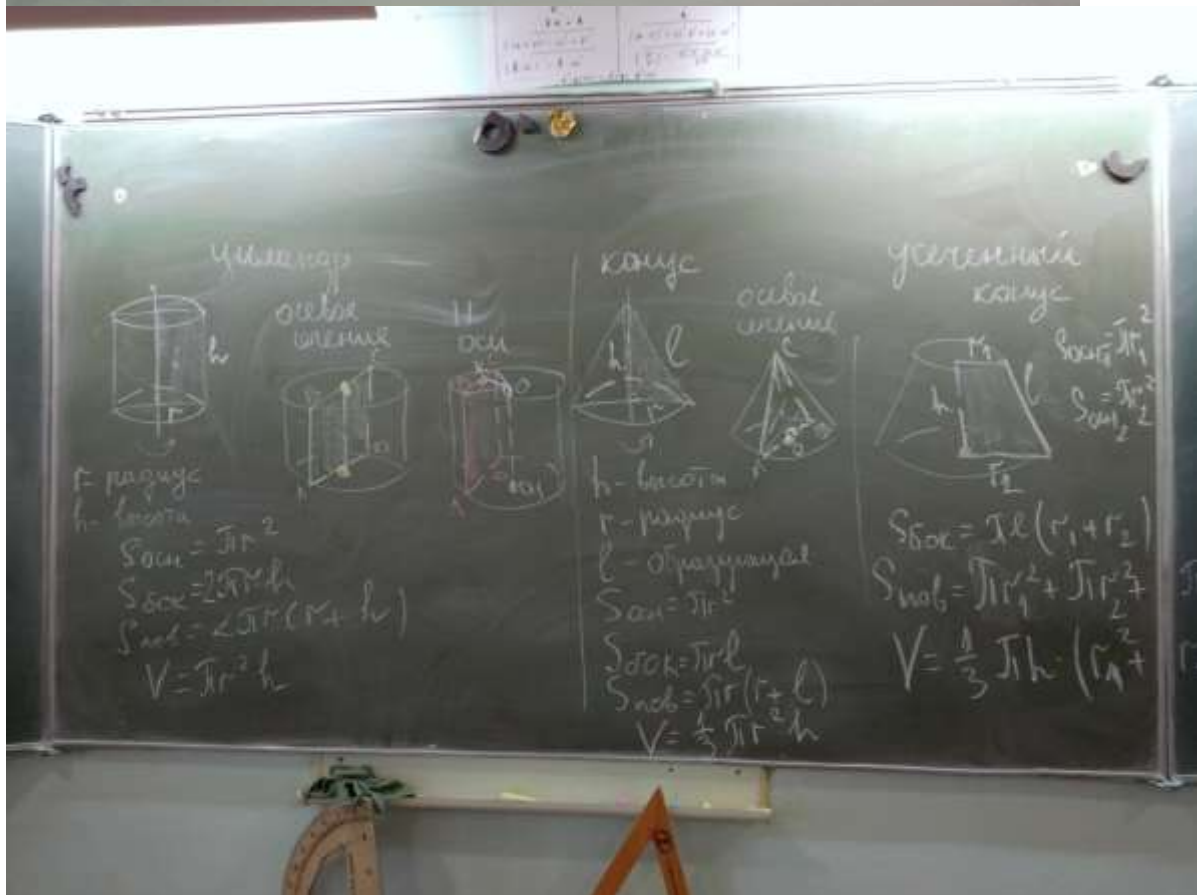 Цилиндр
h
r
осевое
сечение
||
оси
O
r - радиус
h - высота
Sосн = πr²
Sбок = 2πrh
Sпов = 2πr(r + h)
V = πr²h
конус
h
l
r
осевое
сечение
h - высота
r - радиус
l - образующая
Sосн = πr²
Sбок = πrl
Sпов = πr(r + l)
V = 1/3 πr²h
усеченный
конус
r₁
h
l
r₂
Sосн₁ = πr₁²
Sосн₂ = πr₂²
Sбок = πl(r₁ + r₂)
Sпов = πr₁² + πr₂² +
V = 1/3 πh · (r₁² +